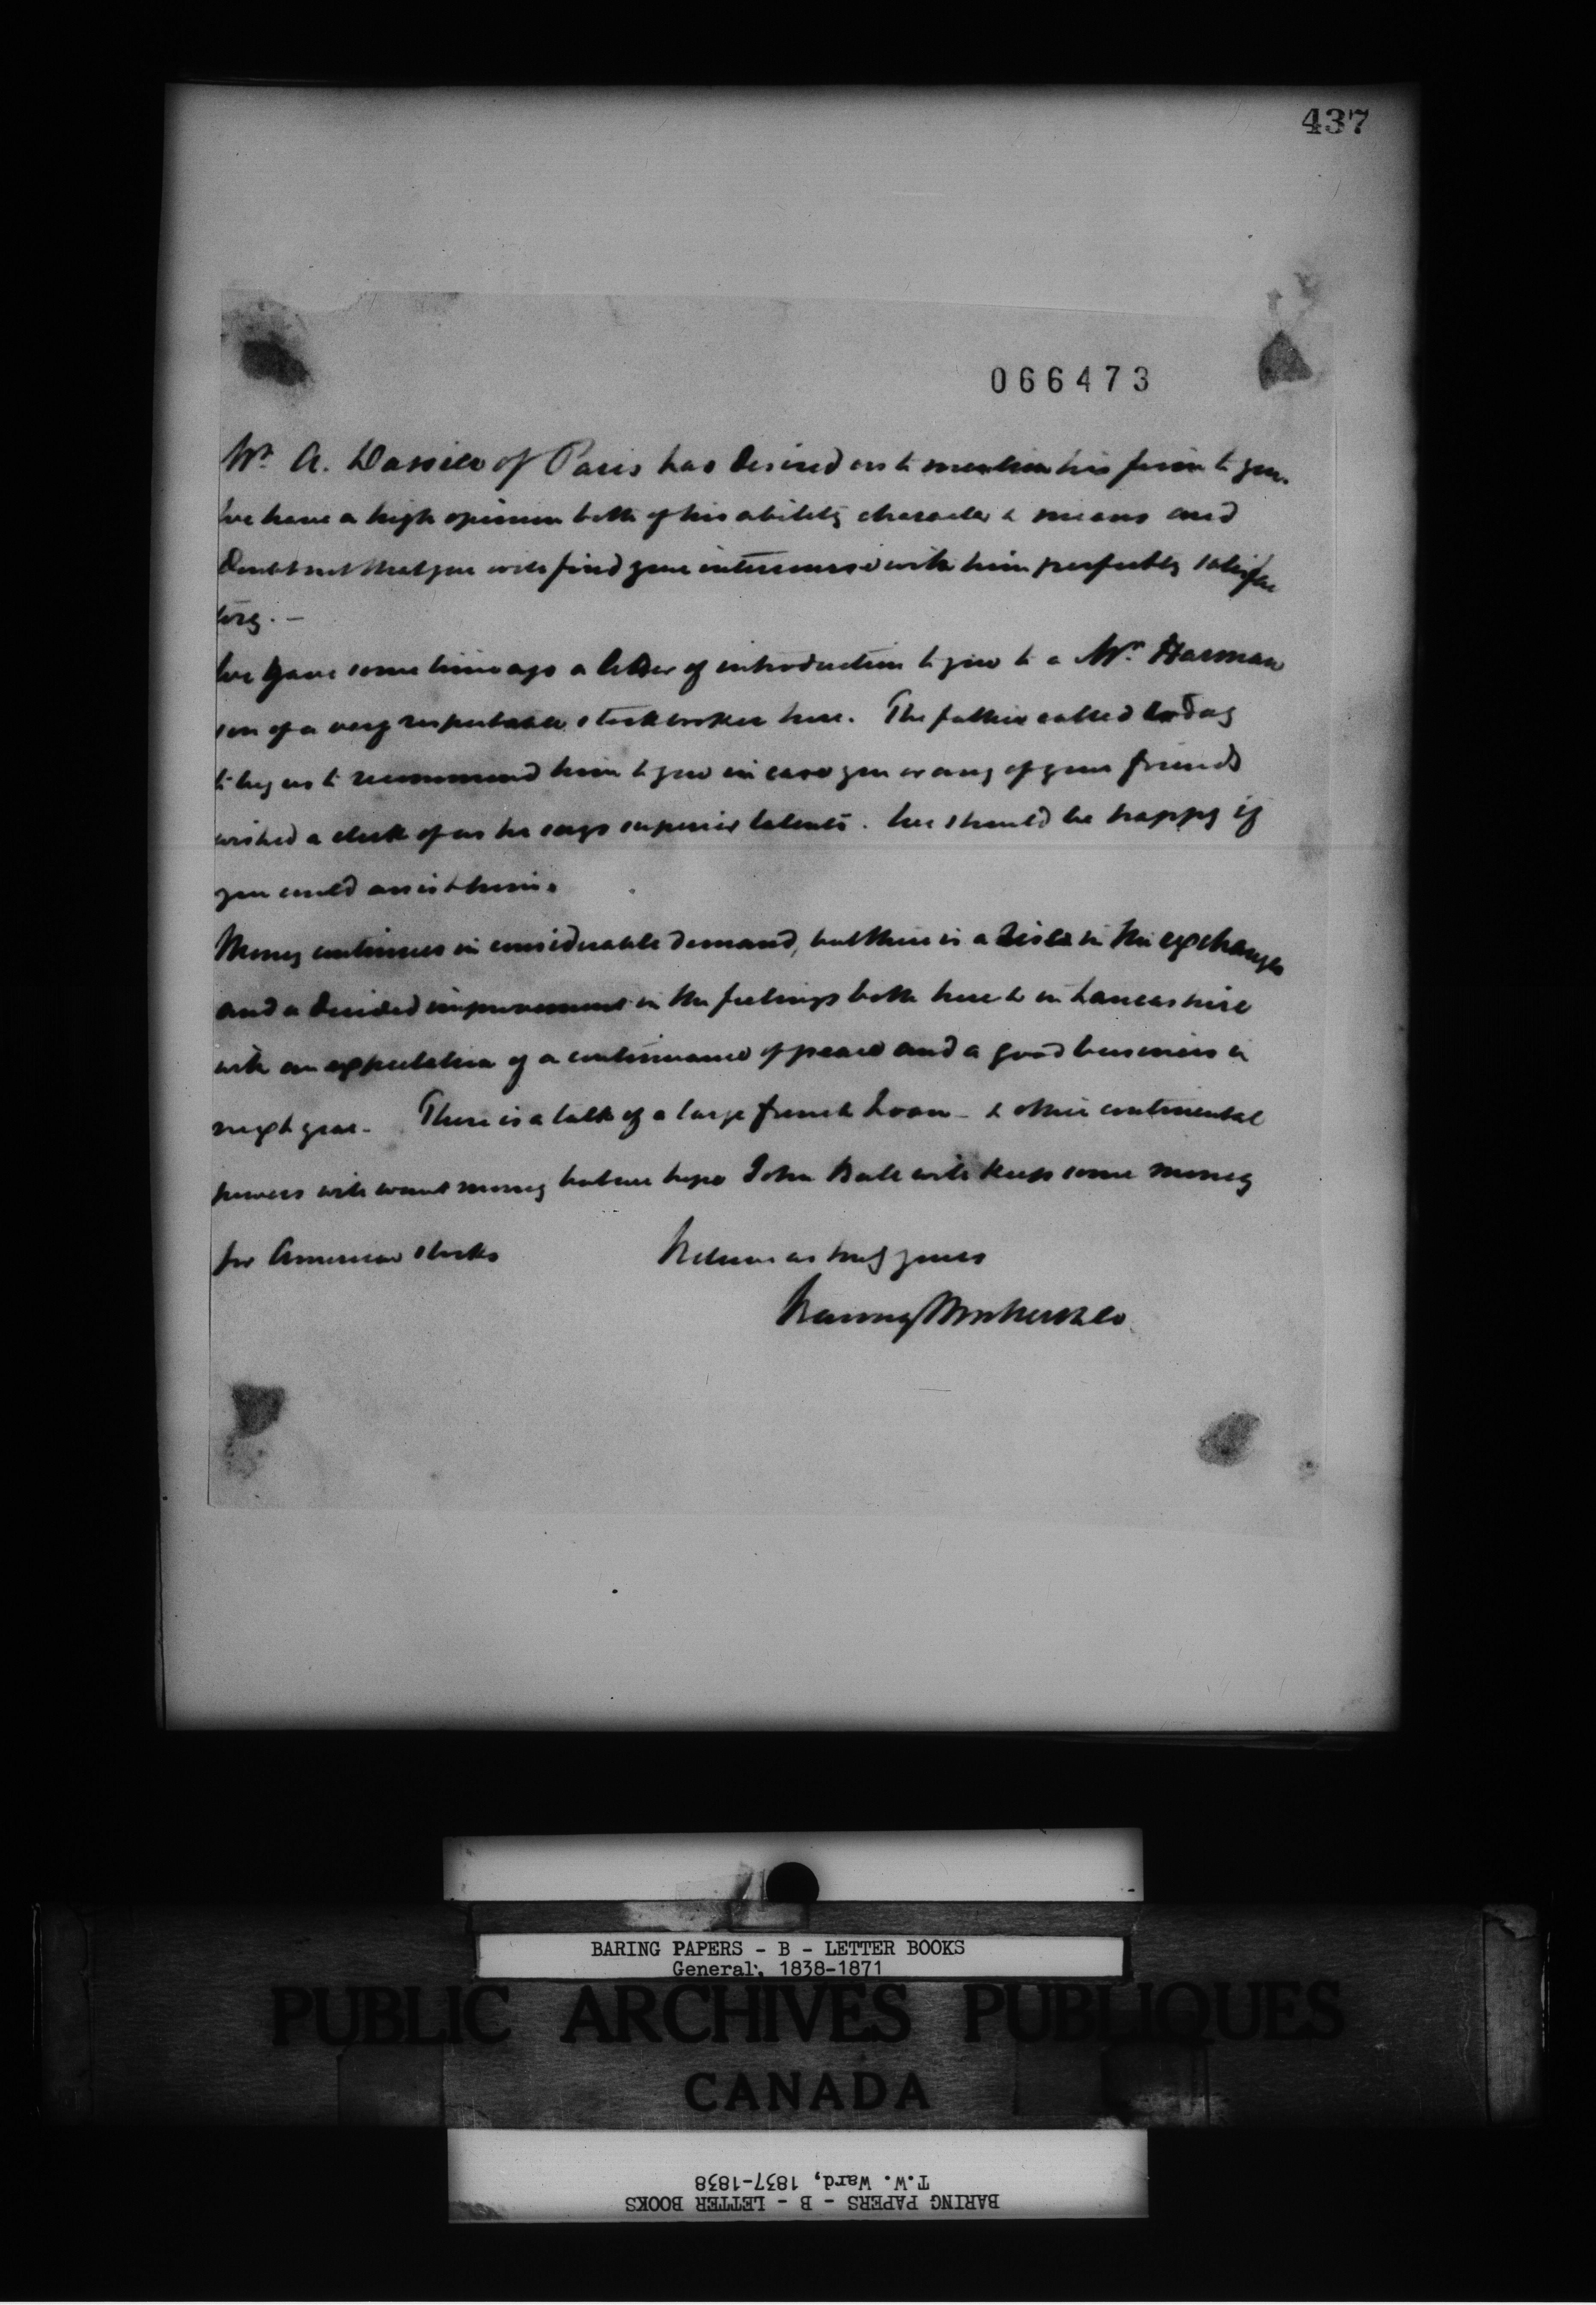 437
066473
Mr. A. Dassier of Paris has desired us to mention his firm to you.
We have a high opinion both of his ability character & means and
doubt not that you will find your intercourse with him perfectly satisfac
tory. –
We gave some time ago a letter of introduction to you to a Mr. Harman
son of a very respectable stock broker here. The father called to day
to beg us to recommend him to you in case you or any of your friends
wished a clerk of as he says superior talents. We should be happy if
you could assist him.
Money continues in considerable demand, but there is a rise in the exchanges
and a decided improvement in the feelings both here & in Lancashire
with an expectation of a continuance of peace and a good business in
next year. There is a talk of a large french Loan – & other continental
powers will want money but we hope John Bull will keep some money
for American stocks Believe us truly yours
Baring Brothers & Co
BARING PAPERS - B - LETTER BOOKS
General, 1838-1871
PUBLIC ARCHIVES PUBLIQUES
CANADA
BARING PAPERS - B - LETTER BOOKS
T.W. Ward, 1837-1838